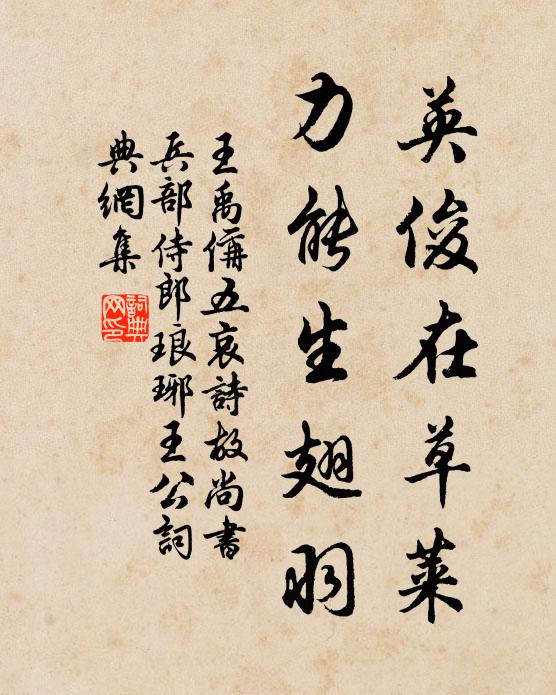 英俊在草萊
力能生翅羽
王禹偁五哀詩故尚書
兵部侍郎琅琊王公詞
典網集
詞典网印